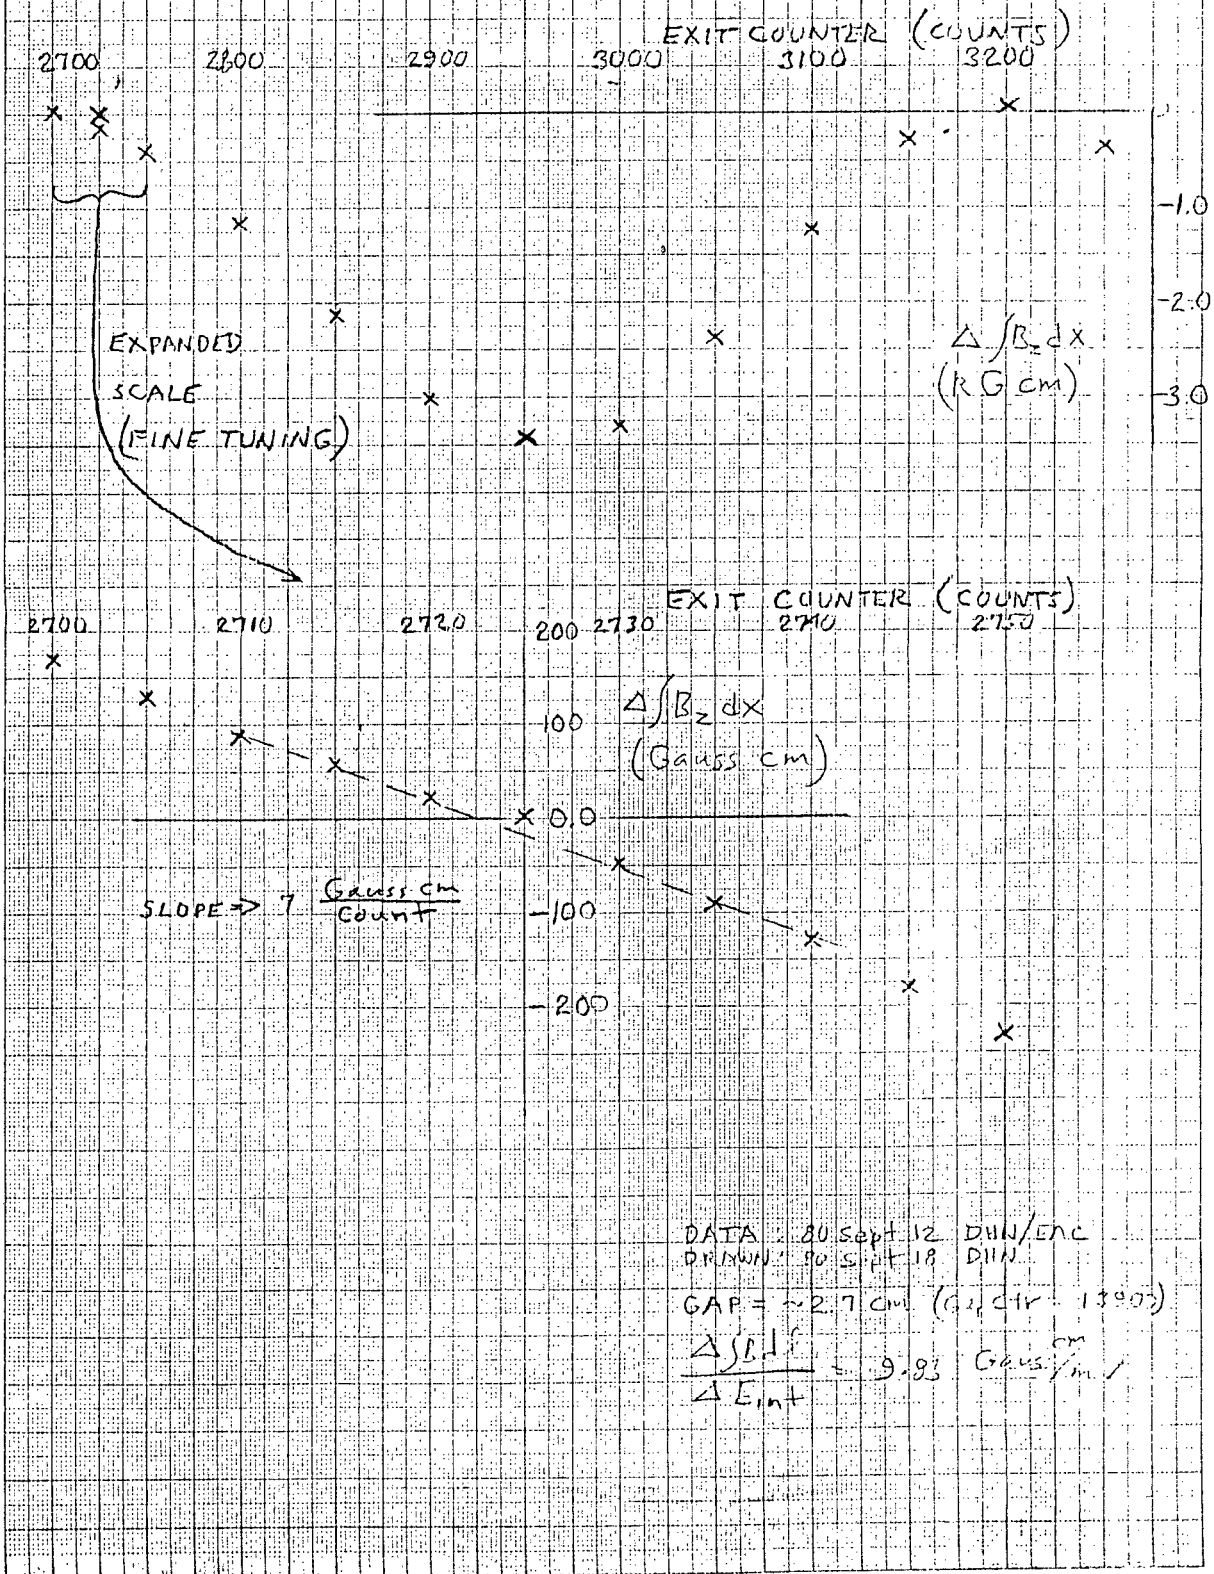 EXIT COUNTER (COUNTS)
2700 2800 2900 3000 3100 3200
-1.0
-2.0
Δ∫B_z dx
(KG cm)
-3.0
EXPANDED
SCALE
(FINE TUNING)
EXIT COUNTER (COUNTS)
2700 2710 2720 2730 2740 2750
200
100
Δ∫B_z dx
(Gauss cm)
0.0
SLOPE => 7 Gauss cm
Count
-100
-200
DATA : 80 Sept 12 DHN/
DRAWN : 80 Sept 18 DHN
GAP = ~2.7 cm
Δ∫Bdl
ΔEint
= 9.83 Gauss cm